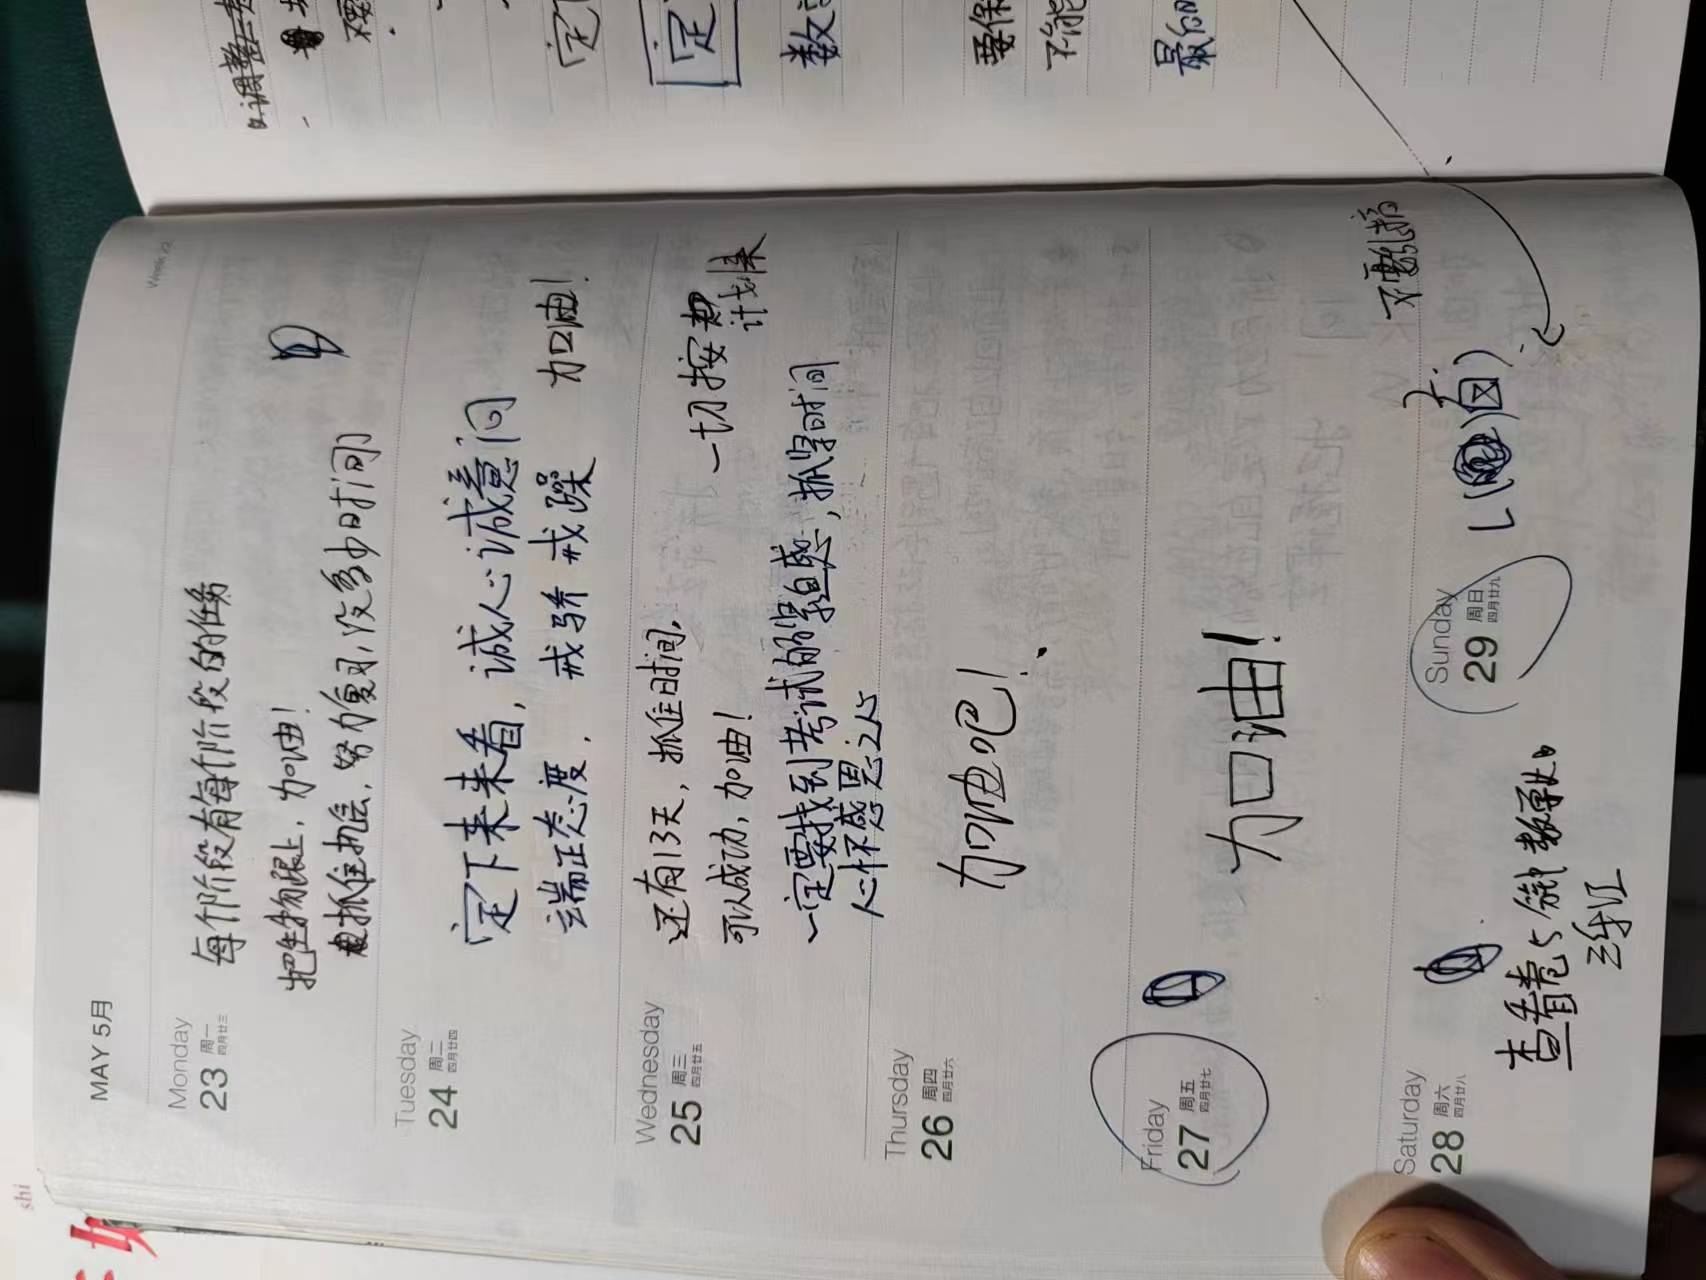 MAY 5月
Week 22
Monday
23 周一
四月廿三
每个阶段有每个阶段的任务
把生物跟上，加油！
抓住机会，努力复习，没多少时间
Tuesday
24 周二
四月廿四
定下来来看，诚心诚意问
端正态度，戒骄戒躁 加油！
Wednesday
25 周三
四月廿五
还有13天，抓住时间， 一切按
计划来
可以成功，加油！
一定要找到考试的紧迫感，抓牢时间
心怀感恩之心
Thursday
26 周四
四月廿六
加油吧！
Friday
27 周五
四月廿七
加油！
Saturday
28 周六
四月廿八
查看卷5
Sunday
29 周日
四月廿九
不要
调整
定
定
数
要保
不能
最
shi